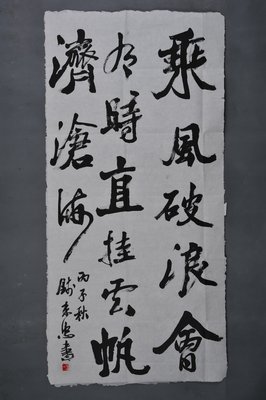 乘風破浪會
有時直挂雲帆
濟滄海
丙子秋
書